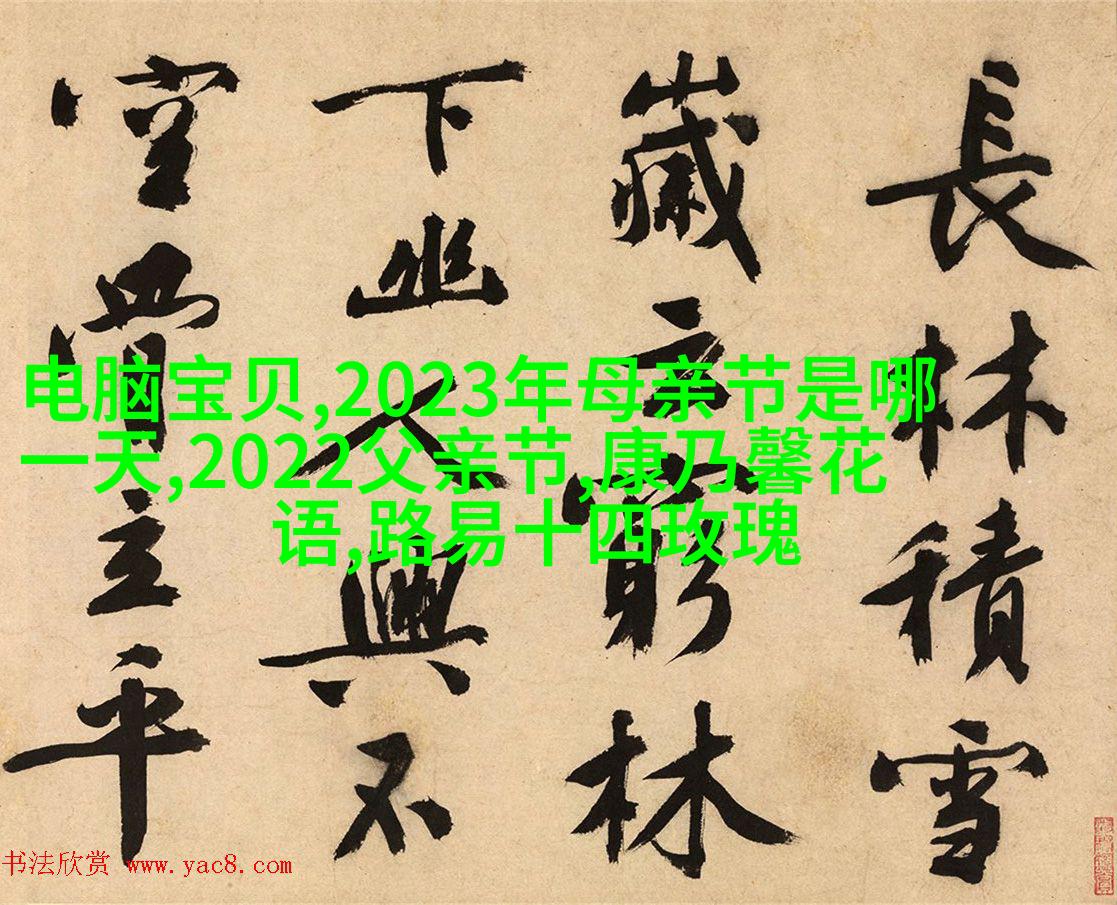 長林積雪
歲云窮林
下幽人興不
空立平
电脑宝贝,2023年母亲节是哪
一天,2022父亲节,康乃馨花
语,路易十四玫瑰
书法欣赏 www.yac8.com